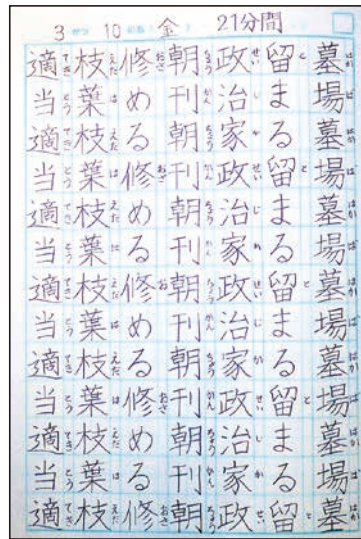 3がつ 10にち (金) 21分間
墓場墓場墓場墓場墓場墓場墓
留まる留まる留まる留まる留
政治家政治家政治家政治家政
朝刊朝刊朝刊朝刊朝刊朝刊朝
修める修める修める修める修
枝葉枝葉枝葉枝葉枝葉枝葉枝
適当適当適当適当適当適当適